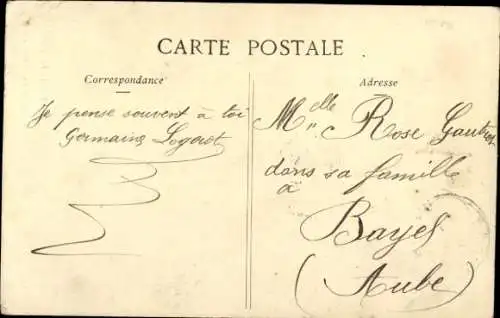 CARTE POSTALE
Correspondance
Je pense souvent à toi
Germaine Logerot
Adresse
Melle Rose Gautier
dans sa famille
à
Bayel
(Aube)